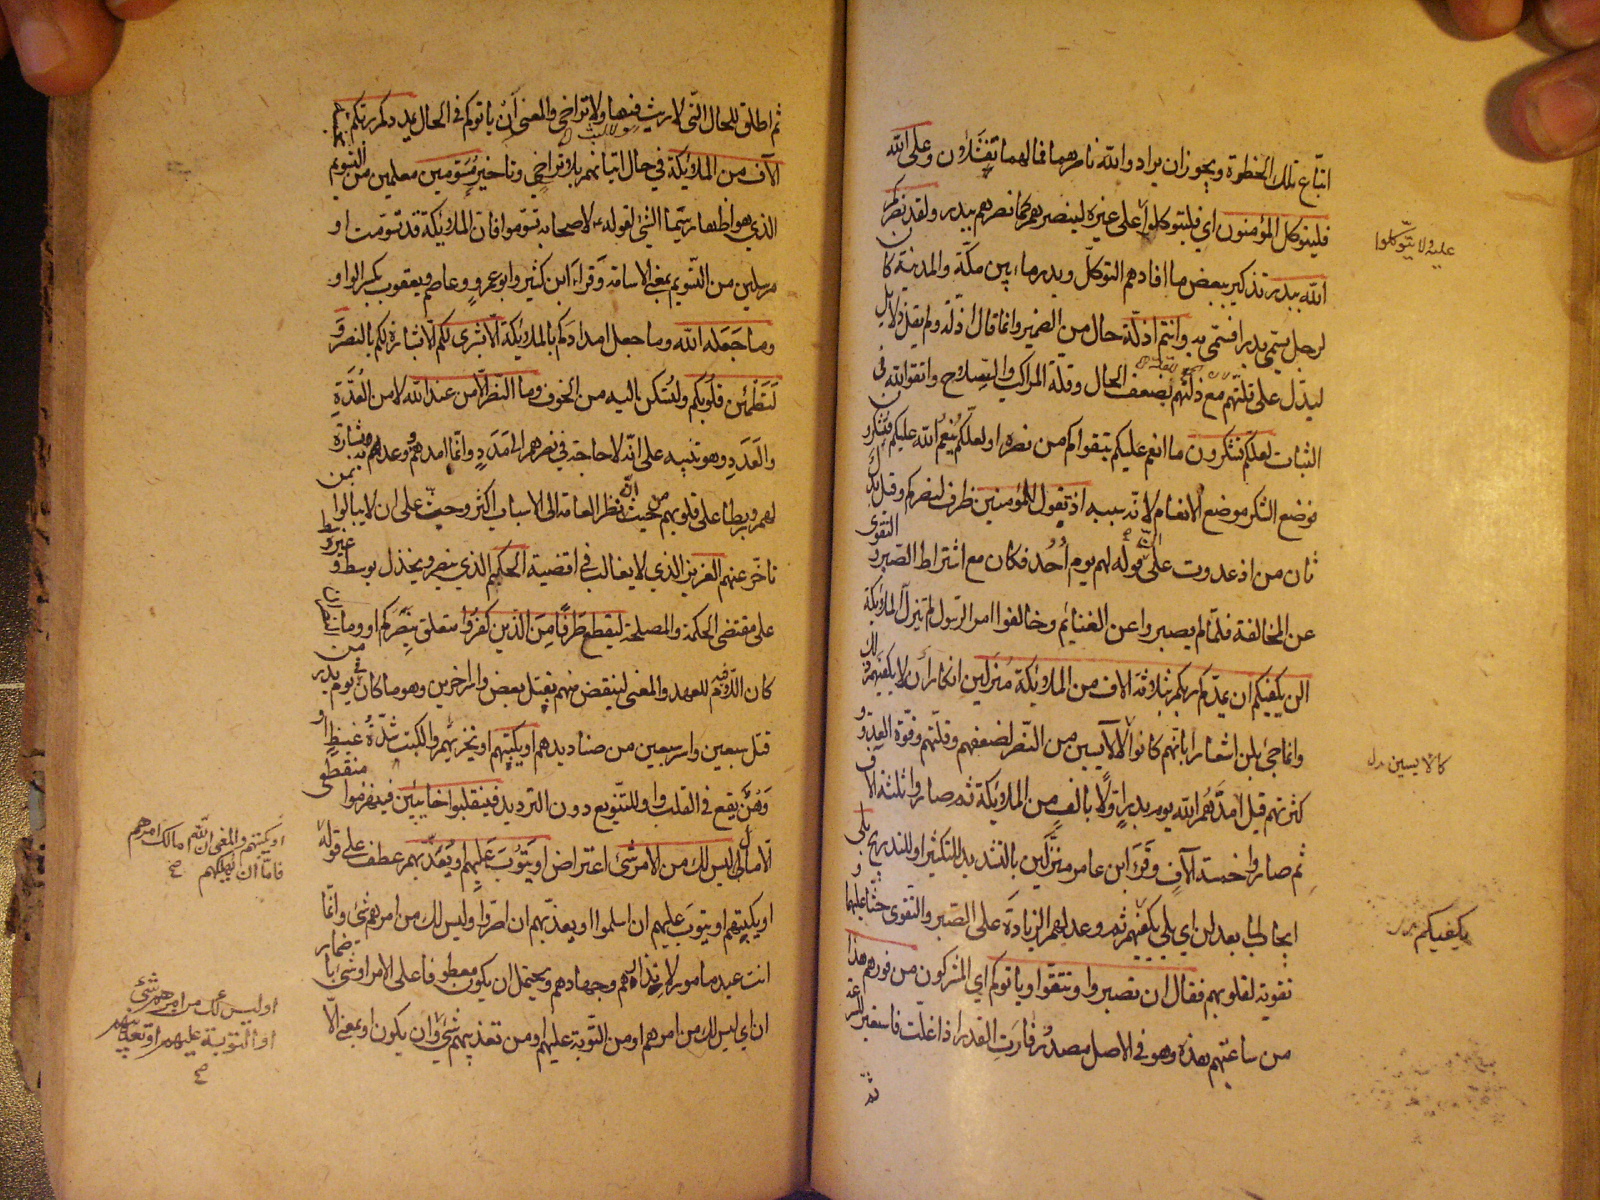 اتباع تلك الخطوة ويجوز ان يراد والله ناصرهما فمالهما تفشلان وعلى الله
فليتوكل المؤمنون اي فليتوكلوا على غيره لينصرهم كما نصرهم ببدر ولقد نصركم
الله ببدر تذكير ببعض ما افادهم التوكل وبدر ماء بين مكة والمدينة كان
لرجل يسمى بدرا فسمى به وانتم اذلة حال من الضمير وانما قال اذلة ولم يقل ذلايل
ليدل على قلتهم مع ذلتهم لضعف الحال وقلة المراكب والسلاح واتقوا الله في
الثبات لعلكم تشكرون ما انعم عليكم بتقواكم من نصره او لعلكم ينعم الله عليكم فتشكرون
فوضع الشكر موضع الانعام لانه سببه اذ تقول للمؤمنين ظرف لنصركم وقيل بدل
ثان من اذ غدوت على ان قوله لهم يوم احد فكان مع اشتراط الصبر والتقوى
عن المخالفة فلما لم يصبروا عن الغنائم وخالفوا امر الرسول لم تنزل الملائكة
الن يكفيكم ان يمدكم ربكم بثلاثة الاف من الملائكة منزلين انكار ان لا يكفيهم ذلك
وانما جئ بلن اشعارا بانهم كانوا كالآيسين من النصر لضعفهم وقلتهم وقوة العدو و
كثرتهم قيل امدهم الله يوم بدر اولا بالف من الملائكة ثم صاروا ثلثة الاف
ثم صاروا خمسة آلاف وقرء ابن عامر منزلين بالتشديد للتكثير او للتدريج بلى
ايجاب لما بعد لن اي بلى يكفيهم ثم وعد لهم الزيادة على الصبر والتقوى حثا عليهما و
تقوية لقلوبهم فقال ان تصبروا وتتقوا وياتوكم اي المشركون من فورهم هذا
من ساعتهم هذه وهو في الاصل مصدر فارت القدر اذا غلت فاستعير للسرعة
ثم
عليه ولا يتوكلوا
كالايسين بدل
يكفيكم بدل
ثم اطلق للحال التي لا ريث فيها ولا تراخي والمعنى ان ياتوكم في الحال يمددكم ربكم بخمسة
الآف من الملائكة في حال اتيانهم بلا تراخي وتاخير مسومين معلمين من التسويم
الذي هو اظهار سيما الشئ لقوله لاصحابه تسوموا فان الملائكة قد تسومت او
مرسلين من التسويم بمعنى الاسامة وقراء ابن كثير وابو عمرو وعاصم ويعقوب بكسر الواو
وما جعله الله وما جعل امدادكم بالملائكة الا بشرى لكم الا بشارة لكم بالنصر و
لتطمئن قلوبكم ولتسكن اليه من الخوف وما النصر الا من عند الله لا من العدة
والعدد وهو تنبيه على انه لا حاجة في نصرهم الى مدد وانما امدهم ووعدهم به بشارة
لهم وربطا على قلوبهم من حيث ان نظر العامة الى الاسباب اكثر وحث على ان لا يبالوا بمن
تاخر عنهم العزيز الذي لا يغالب في اقضيته الحكيم الذي ينصر ويخذل بوسط وغير وسط
على مقتضى الحكمة والمصلحة ليقطع طرفا من الذين كفروا متعلق بنصركم او وما النصر
كان اللام فيه للعهد والمعنى لينقص منهم بقتل بعض واسر اخرين وهو ما كان في يوم بدر من
قتل سبعين واسر سبعين من صناديدهم او يكبتهم او يخزيهم والكبت شدة غيظ او
وهن يقع في القلب واو للتنويع دون الترديد فينقلبوا خايبين فينهزموا منقطعي
الآمال ليس لك من الامر شئ اعتراض او يتوب عليهم او يعذبهم عطف على قوله
او يكبتهم او يتوب عليهم ان اسلموا او يعذبهم ان اصروا وليس لك من امرهم شئ وانما
انت عبد مامور لانذارهم وجهادهم ويحتمل ان يكون معطوفا على الامر او شئ باضمار
ان اي ليس لك من امرهم او من التوبة عليهم او من تعذيبهم شئ وان يكون او بمعنى الا
او يكبتهم والمعنى ان الله مالك امرهم
فاما ان يهلكهم صح
او ليس لك من امرهم شئ
او التوبة عليهم او تعذيبهم
صح